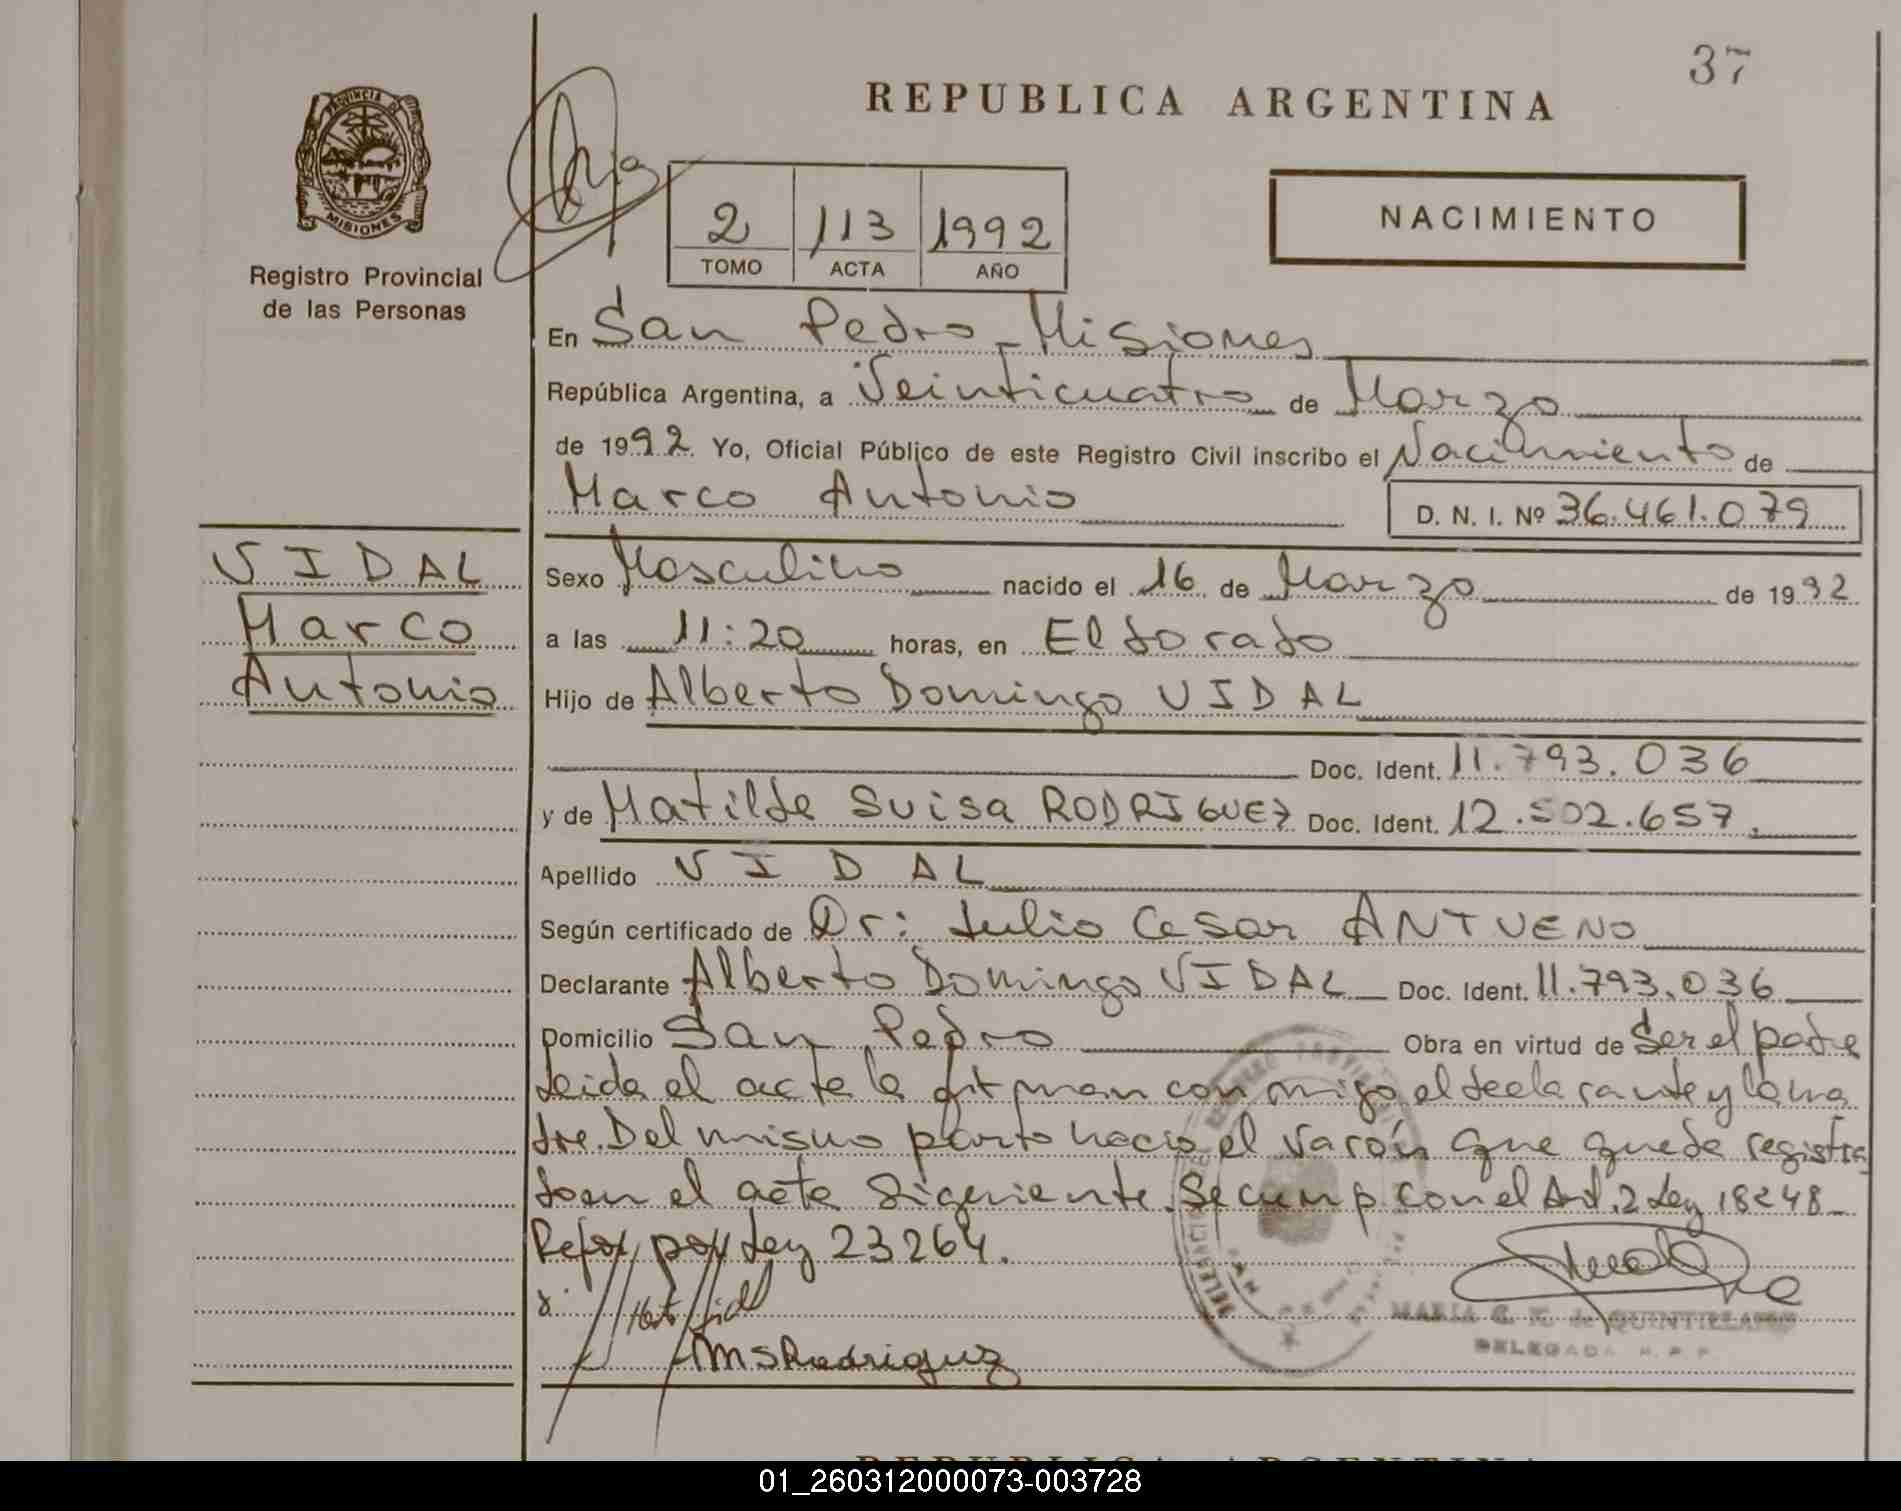 37
REPUBLICA ARGENTINA
PROVINCIA DE
MISIONES
Registro Provincial
de las Personas
2 113 1992
TOMO ACTA AÑO
NACIMIENTO
En San Pedro - Misiones
República Argentina, a Veinticuatro de Marzo
de 1992 Yo, Oficial Público de este Registro Civil inscribo el Nacimiento de
Marco Antonio D. N. I. Nº 36.461.079
VIDAL
Marco
Antonio
Sexo Masculino nacido el 16 de Marzo de 1992
a las 11:20 horas, en Eldorado
Hijo de Alberto Domingo VIDAL
Doc. Ident. 11.793.036
y de Matilde Suisa RODRIGUEZ Doc. Ident. 12.502.657.
Apellido VIDAL
Según certificado de Dr: Julio Cesar ANTUENO
Declarante Alberto Domingo VIDAL Doc. Ident. 11.793.036
Domicilio San Pedro Obra en virtud de Ser el padre
Leida el acta la firman con migo el declarante y la ma
dre. Del mismo parto nacio el varón que queda registra
do en el acta siguiente. Se cump con el Art. 2 Ley 18248
Refor por Ley 23264.
MSRodriguez
MARIA G. K. de QUINTILLANO
DELEGADA R.P.P.
REPUBLICA ARGENTINA
01_260312000073-003728